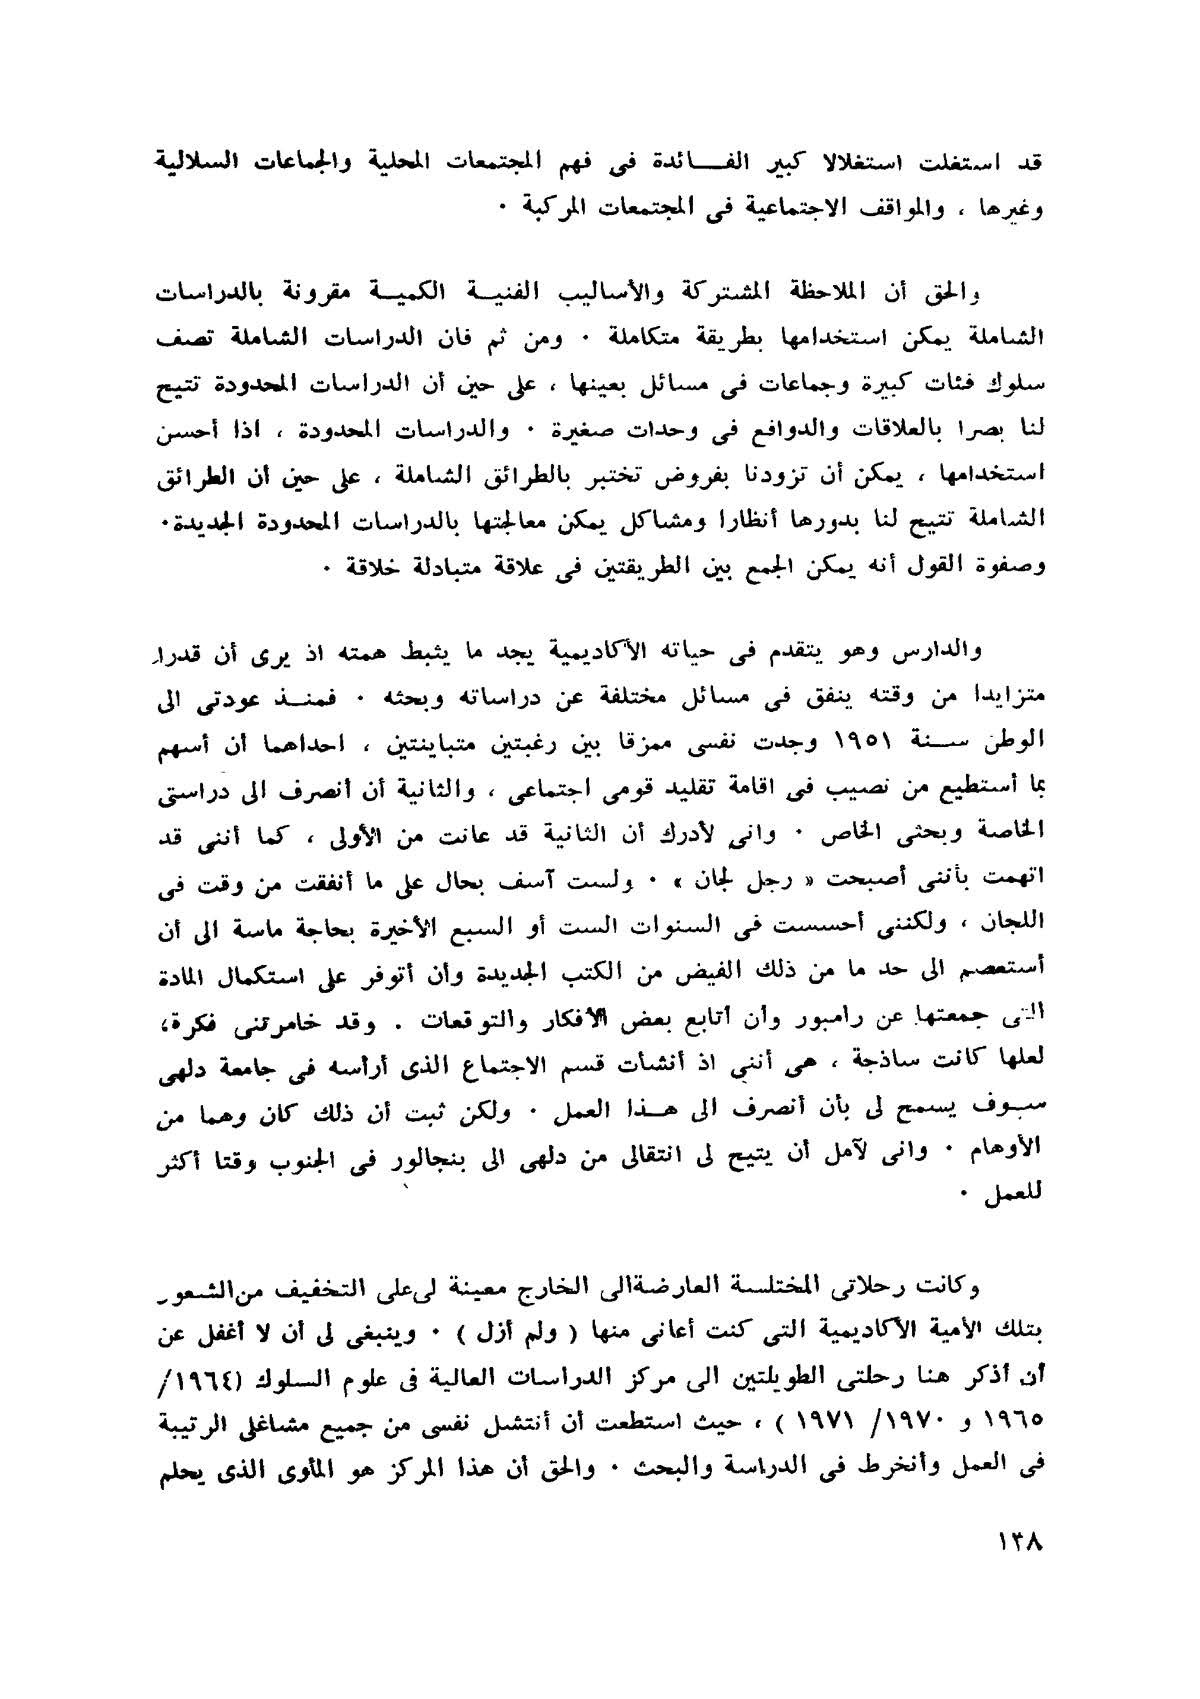 قد استغلت استغلالا كبير الفـــائدة فى فهم المجتمعات المحلية والجماعات السلالية
وغيرها ، والمواقف الاجتماعية فى المجتمعات المركبة ٠
والحق أن الملاحظة المشتركة والأساليب الفنيـة الكميـة مقرونة بالدراسات
الشاملة يمكن استخدامها بطريقة متكاملة ٠ ومن ثم فان الدراسات الشاملة تصف
سلوك فئات كبيرة وجماعات فى مسائل بعينها ، على حين أن الدراسات المحدودة تتيح
لنا بصرا بالعلاقات والدوافع فى وحدات صغيرة ٠ والدراسات المحدودة ، اذا أحسن
استخدامها ، يمكن أن تزودنا بفروض تختبر بالطرائق الشاملة ، على حين أن الطرائق
الشاملة تتيح لنا بدورها أنظارا ومشاكل يمكن معالجتها بالدراسات المحدودة الجديدة٠
وصفوة القول أنه يمكن الجمع بين الطريقتين فى علاقة متبادلة خلاقة ٠
والدارس وهو يتقدم فى حياته الأكاديمية يجد ما يثبط همته اذ يرى أن قدرا
متزايدا من وقته ينفق في مسائل مختلفة عن دراساته وبحثه ٠ فمنـذ عودتى الى
الوطن سـنة ١٩٥١ وجدت نفسى ممزقا بين رغبتين متباينتين ، احداهما أن أسهم
بما أستطيع من نصيب فى اقامة تقليد قومى اجتماعى ، والثانية أن أنصرف الى دراستى
الخاصة وبحثى الخاص ٠ وانى لأدرك أن الثانية قد عانت من الأولى ، كما أننى قد
اتهمت بأننى أصبحت « رجل لجان » ٠ ولست آسف بحال على ما أنفقت من وقت فى
اللجان ، ولكننى أحسست فى السنوات الست أو السبع الأخيرة بحاجة ماسة الى أن
أستعصم الى حد ما من ذلك الفيض من الكتب الجديدة وأن أتوفر على استكمال المادة
التى جمعتها عن رامبور وأن أتابع بعض الأفكار والتوقعات . وقد خامرتنى فكرة،
لعلها كانت ساذجة ، هى أننى اذ أنشأت قسم الاجتماع الذى أرأسه فى جامعة دلهى
سـوف يسمح لى بأن أنصرف الى هـذا العمل ٠ ولكن ثبت أن ذلك كان وهما من
الأوهام ٠ وانى لآمل أن يتيح لى انتقالى من دلهى الى بنجالور فى الجنوب وقتا أكثر
للعمل ٠
وكانت رحلاتى المختلسة العارضةالى الخارج معينة لىعلى التخفيف منالشعور
بتلك الأمية الأكاديمية التى كنت أعانى منها ( ولم أزل ) ٠ وينبغى لى أن لا أغفل عن
أن أذكر هنا رحلتى الطويلتين الى مركز الدراسات العالية فى علوم السلوك (١٩٦٤/
١٩٦٥ و ١٩٧٠/ ١٩٧١ ) ، حيث استطعت أن أنتشل نفسى من جميع مشاغلى الرتيبة
فى العمل وأنخرط فى الدراسة والبحث ٠ والحق أن هذا المركز هو المأوى الذى يحلم
١٣٨